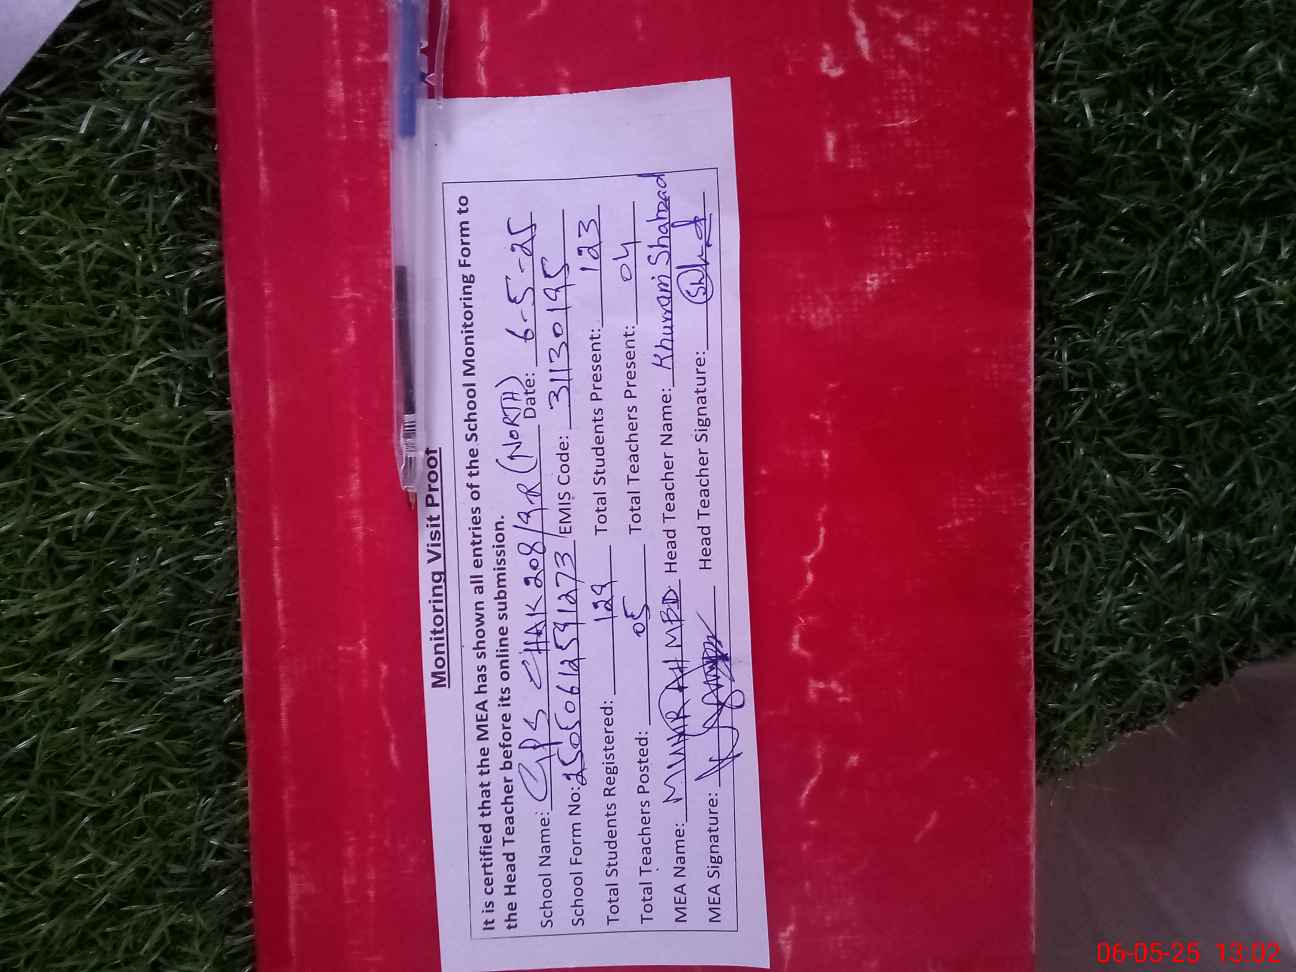 Monitoring Visit Proof
It is certified that the MEA has shown all entries of the School Monitoring Form to
the Head Teacher before its online submission.
School Name: GPS CHAK 208/9R (NORTH) Date: 6-5-25
School Form No: 25050612591273 EMIS Code: 31130195
Total Students Registered: 129 Total Students Present: 123
Total Teachers Posted: 05 Total Teachers Present: 04
MEA Name: AHMED Head Teacher Name: Khurram Shahzad
MEA Signature: Head Teacher Signature:
06-05-25 13:02